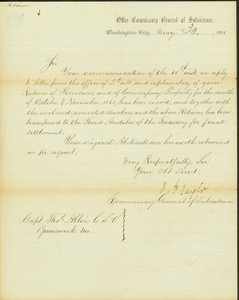 Office Commissary General of Subsistence,
Washington City, 186
Sir
Your communication of the 10th inst. in reply
to letter from this office of 2d and explanatory of your
Returns of Provisions and of Commissary Property for the months
of October & November 186 has been received and together with
the and corrected Abstract and the above Returns has been
transferred to the Third Auditor of the Treasury for final
settlement.
Your original Abstracts are herewith returned
as you request.
Very Respectfully Sir
Your Obt Servt
Commissary General of Subsistence
Capt Thos. Allin C.S.
Brunswick Me